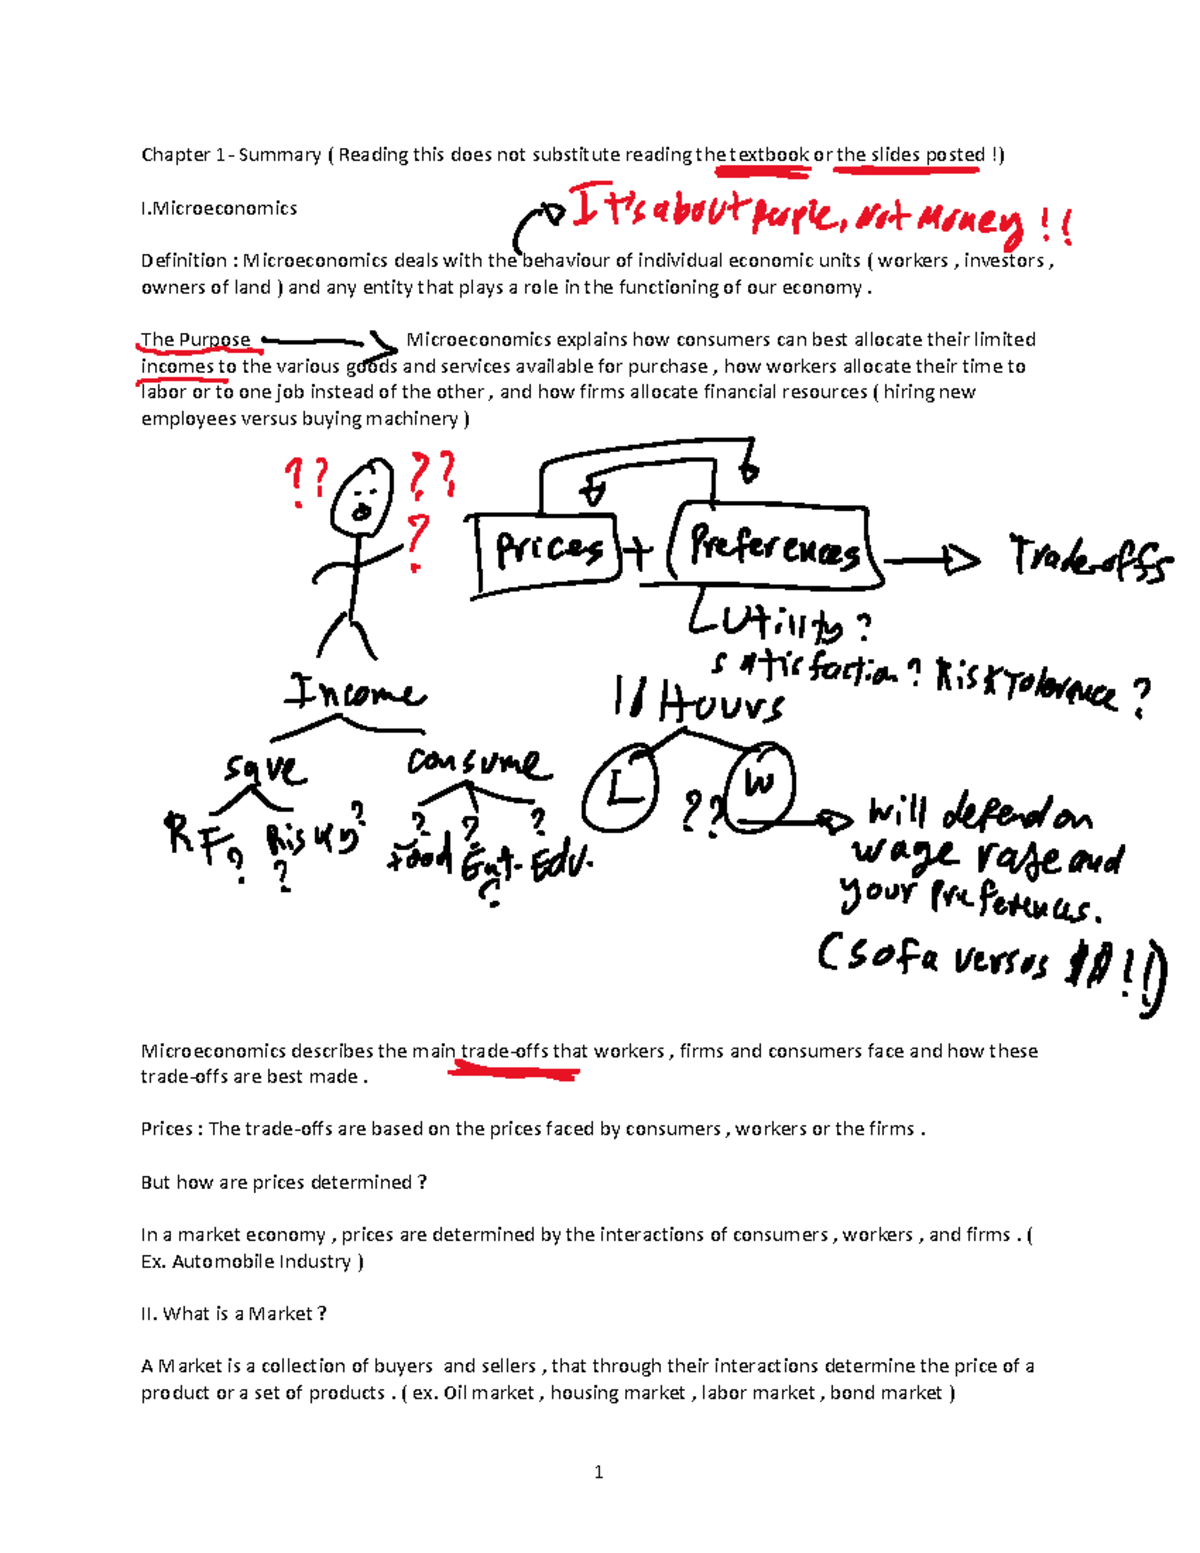 Chapter 1- Summary ( Reading this does not substitute reading the textbook or the slides posted !)
I.Microeconomics
It's about people, not money !!
Definition : Microeconomics deals with the behaviour of individual economic units ( workers , investors ,
owners of land ) and any entity that plays a role in the functioning of our economy .
The Purpose Microeconomics explains how consumers can best allocate their limited
incomes to the various goods and services available for purchase , how workers allocate their time to
labor or to one job instead of the other , and how firms allocate financial resources ( hiring new
employees versus buying machinery )
?? ??
?
Prices + Preferences Trade-offs
Utility ?
satisfaction ? Risk Tolerance ?
Income
Hours
save consume
L ?? W
RF ? Risky ? ?
? ? ?
Food Ent. Edu.
?
will depend on
wage rate and
your preferences.
(sofa versus $$ !!)
Microeconomics describes the main trade-offs that workers , firms and consumers face and how these
trade-offs are best made .
Prices : The trade-offs are based on the prices faced by consumers , workers or the firms .
But how are prices determined ?
In a market economy , prices are determined by the interactions of consumers , workers , and firms . (
Ex. Automobile Industry )
II. What is a Market ?
A Market is a collection of buyers and sellers , that through their interactions determine the price of a
product or a set of products . ( ex. Oil market , housing market , labor market , bond market )
1